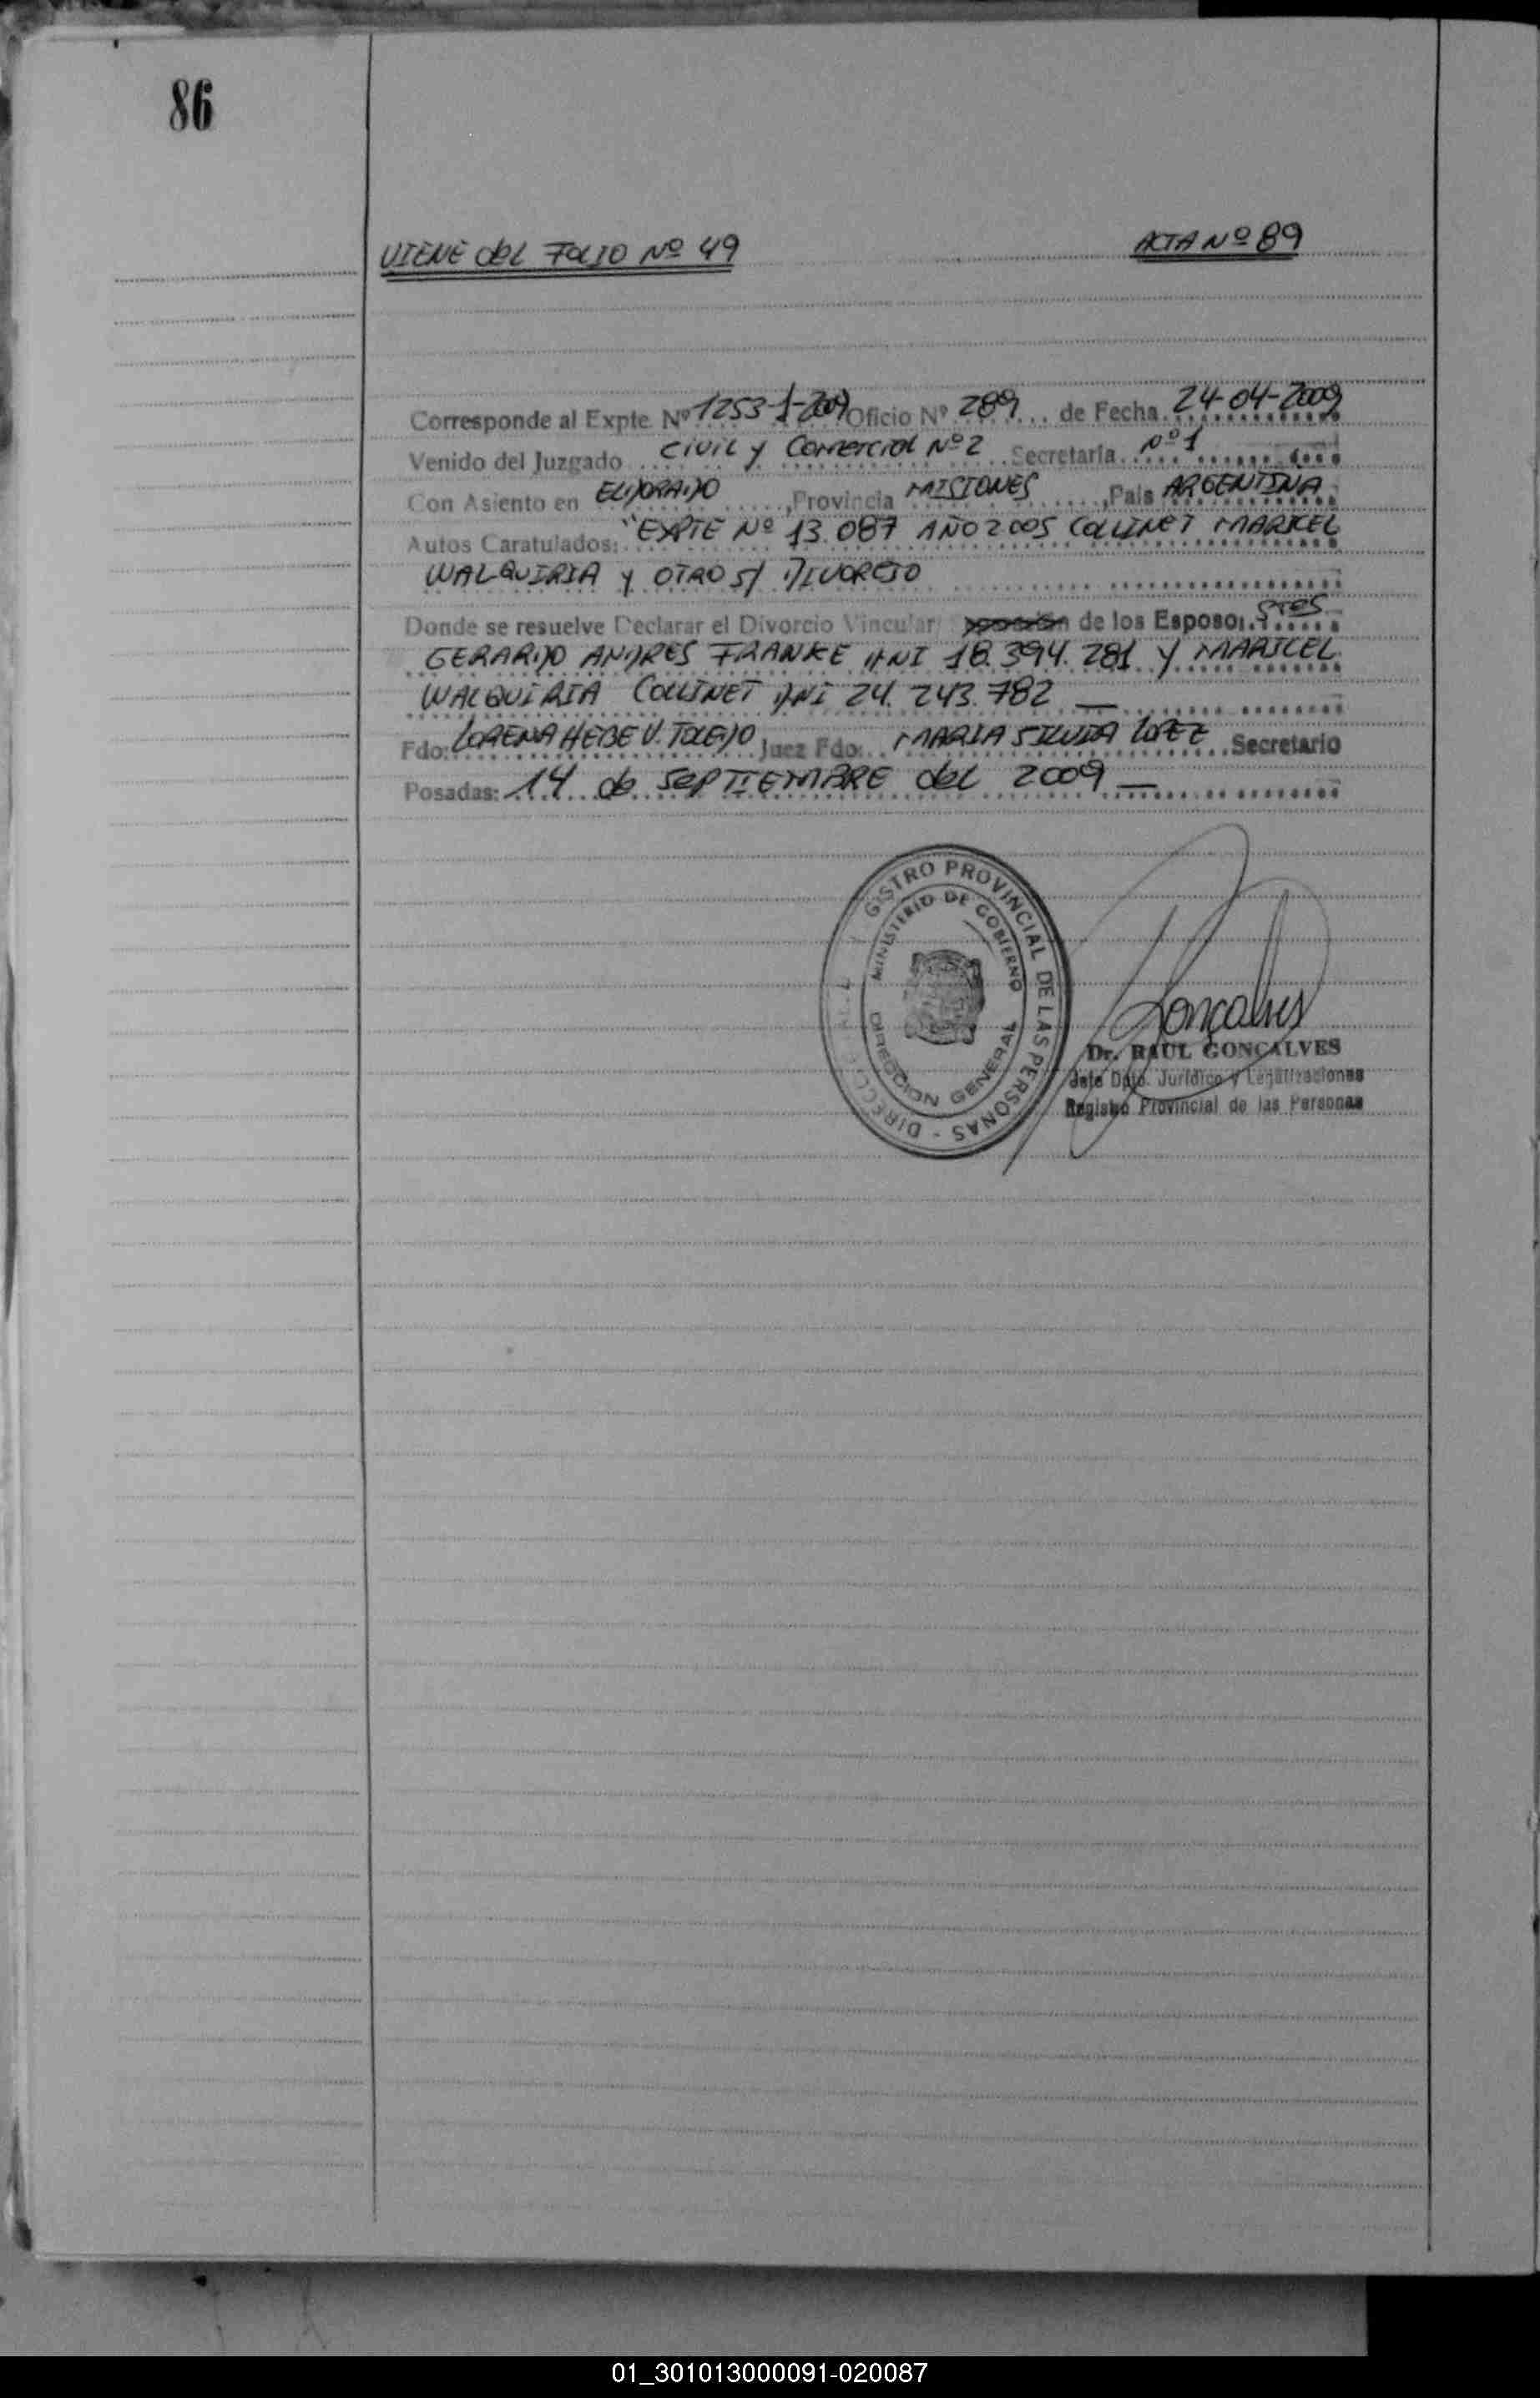 86
VIENE del FOLIO Nº 49 ACTA Nº 89
Corresponde al Expte. Nº 1253-J-2009 Oficio Nº 289 de Fecha 24-04-2009
Venido del Juzgado CIVIL y Comercial Nº 2 Secretaria Nº 1
Con Asiento en ELDORADO, Provincia MISIONES, Pais ARGENTINA
Autos Caratulados: "EXPTE Nº 13.087 AÑO 2005 COLLINET MARICEL
WALQUIRIA y OTRO S/ DIVORCIO
Donde se resuelve Declarar el Divorcio Vincular de los Esposos Sres
GERARDO ANDRES FRANKE DNI 18.394.281 Y MARICEL
WALQUIRIA COLLINET DNI 24.243.782 —
Fdo: LORENA HEBE V. TOLEDO Juez Fdo: MARIA SILVIA LOPEZ Secretario
Posadas: 14 de SEPTIEMBRE del 2009 —
GISTRO PROVINCIAL DE LAS PERSONAS - DIRECC
MINISTERIO DE GOBIERNO
DIRECCION GENERAL
Gonçalves
Dr. RAUL GONÇALVES
Jefe Dpto. Jurídico y Legalizaciones
Registro Provincial de las Personas
01_301013000091-020087